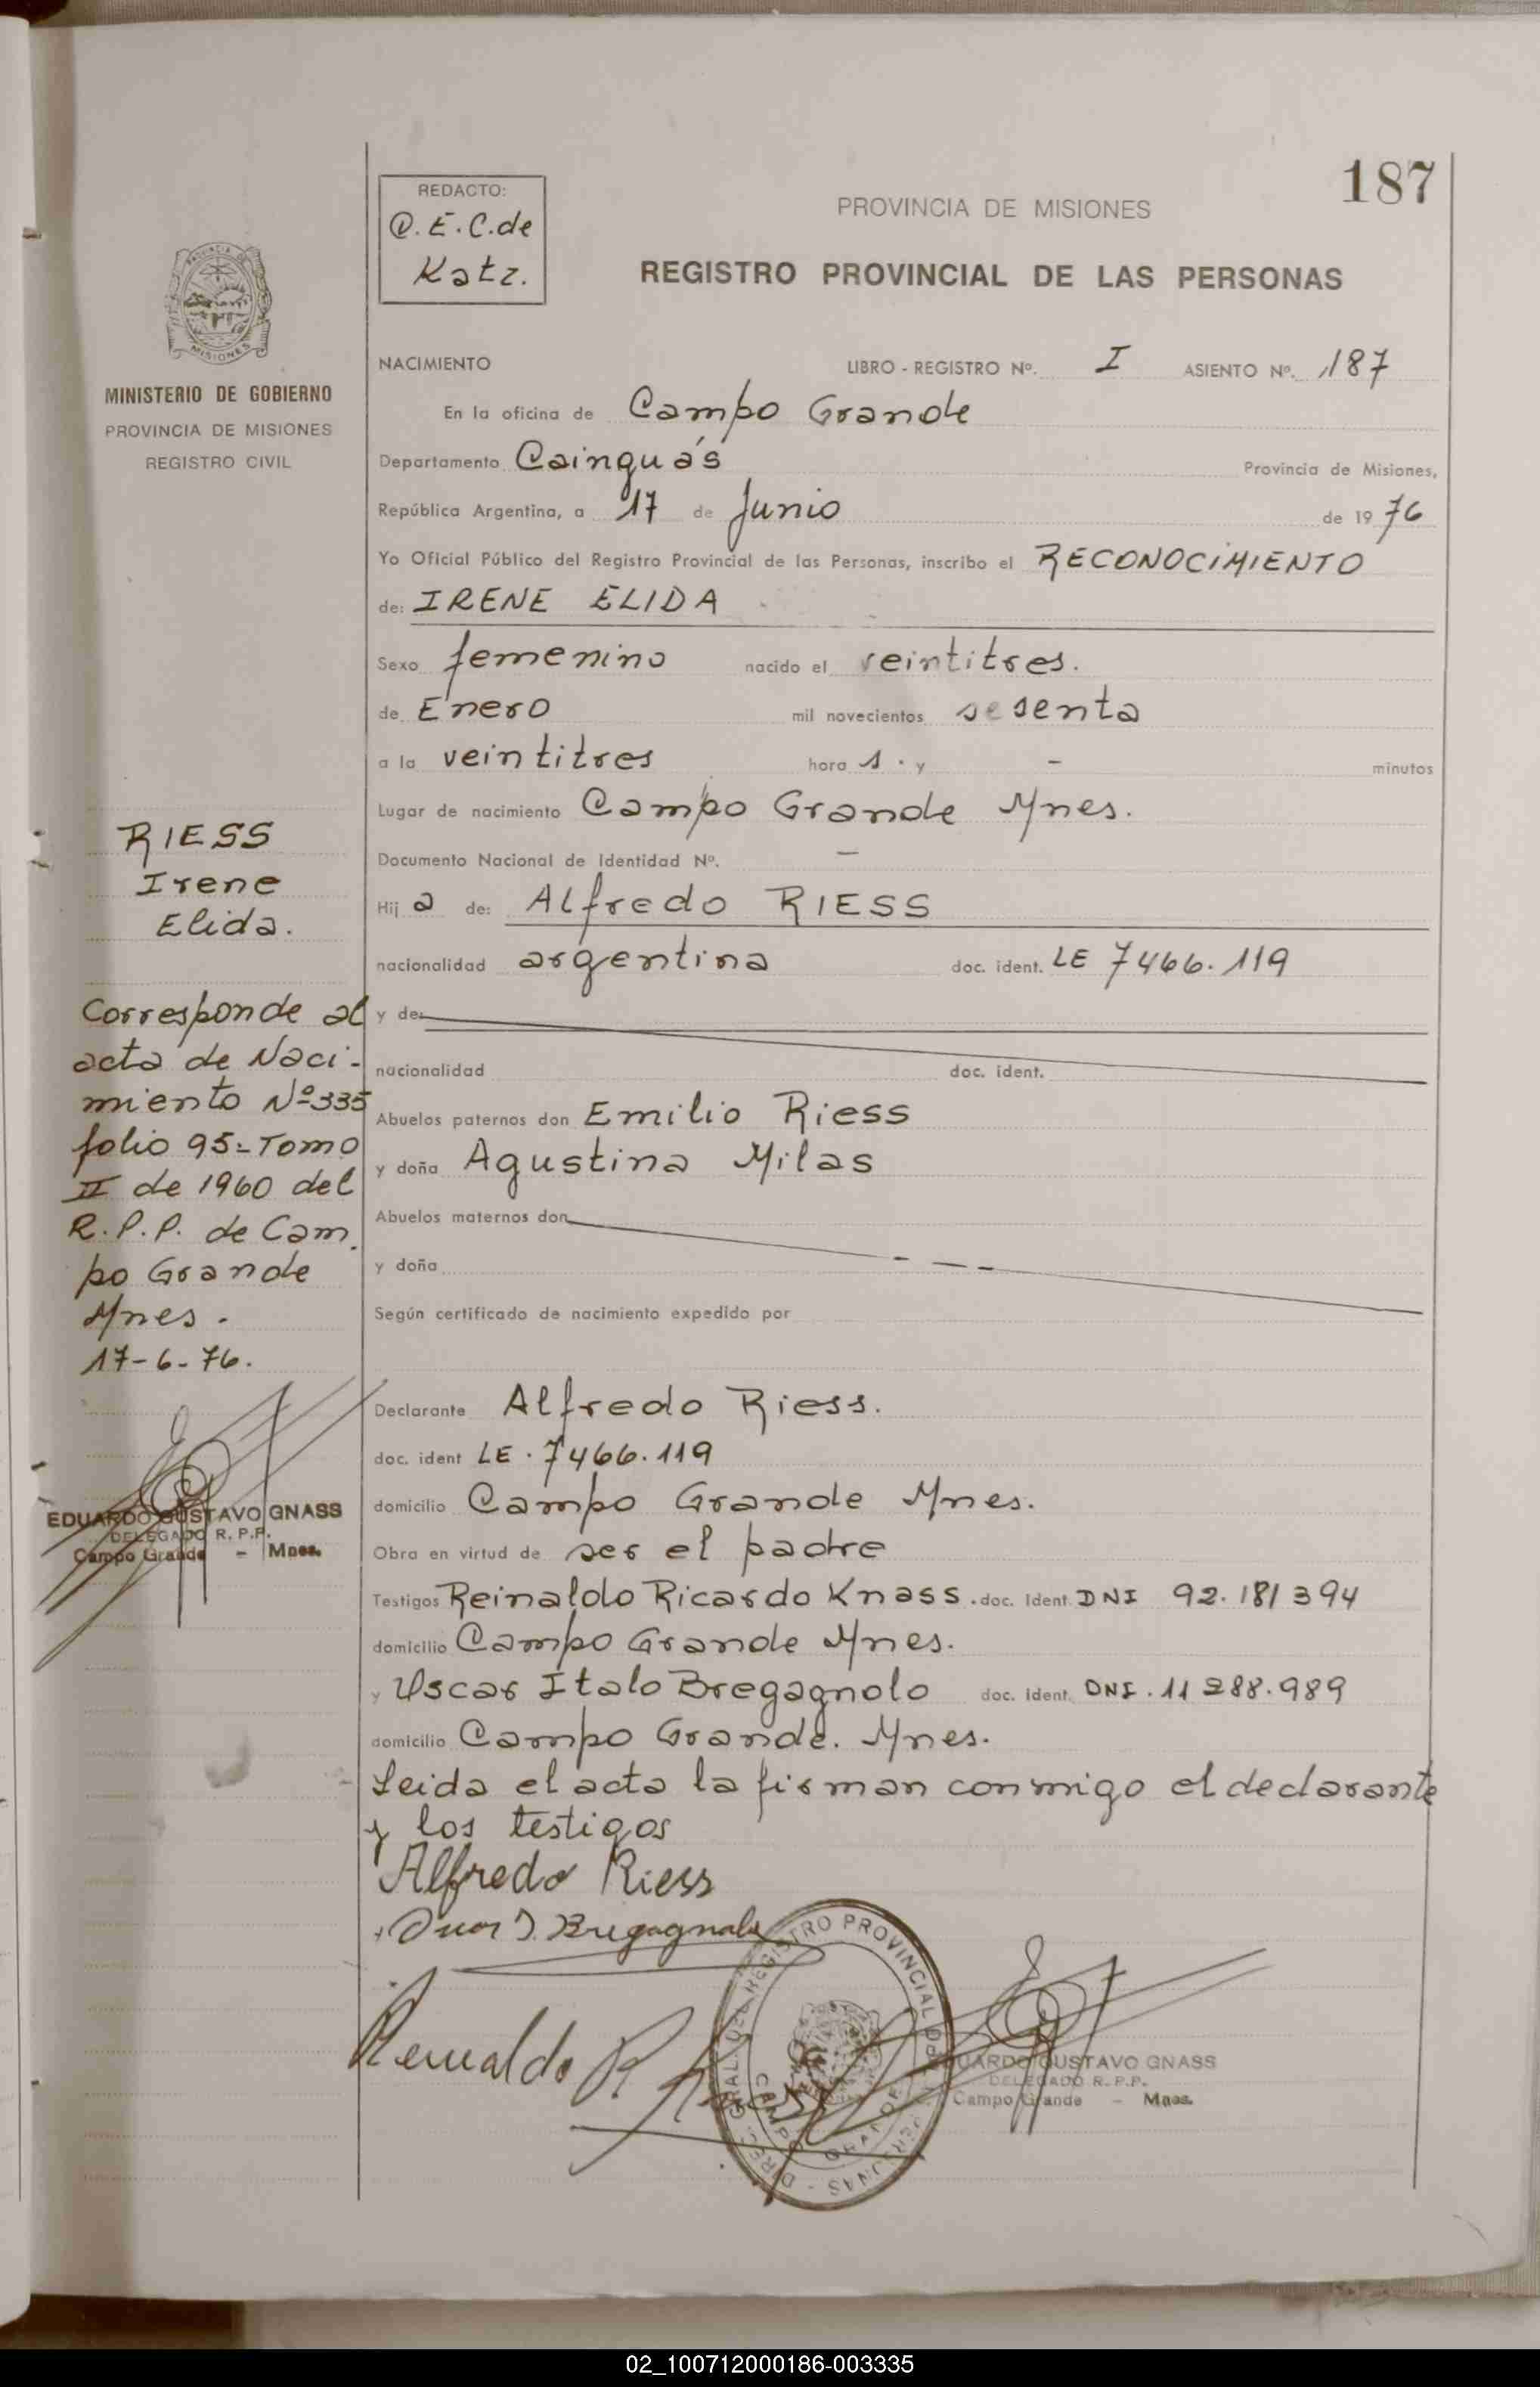 187
REDACTO:
C.E.C.de
Katz.
PROVINCIA DE MISIONES
REGISTRO PROVINCIAL DE LAS PERSONAS
MINISTERIO DE GOBIERNO
PROVINCIA DE MISIONES
REGISTRO CIVIL
NACIMIENTO LIBRO - REGISTRO Nº. I ASIENTO Nº. 187
En la oficina de Campo Grande
Departamento Cainguás Provincia de Misiones,
República Argentina, a 17 de Junio de 1976
Yo Oficial Público del Registro Provincial de las Personas, inscribo el RECONOCIMIENTO
de: IRENE ELIDA
Sexo femenino nacido el veintitres.
de Enero mil novecientos sesenta
a la veintitres hora s. y - minutos
Lugar de nacimiento Campo Grande Mnes.
Documento Nacional de Identidad Nº. -
Hija de: Alfredo RIESS
nacionalidad argentina doc. ident. LE 7466.119
y de:
nacionalidad doc. ident.
Abuelos paternos don Emilio Riess
y doña Agustina Milas
Abuelos maternos don
y doña
Según certificado de nacimiento expedido por
Declarante Alfredo Riess.
doc. ident LE. 7466.119
domicilio Campo Grande Mnes.
Obra en virtud de ser el padre
Testigos Reinaldo Ricardo Knass. doc. ident. DNI 92.181394
domicilio Campo Grande Mnes.
y Oscar Italo Bregagnolo doc. ident. DNI. 11288.989
domicilio Campo Grande. Mnes.
Leida el acta la firman conmigo el declarante
y los testigos
Alfredo Riess
RIESS
Irene
Elida.
Corresponde al
acta de Naci-
miento Nº335
folio 95-Tomo
II de 1960 del
R.P.P. de Cam
po Grande
Mnes.
17-6-76.
EDUARDO GUSTAVO GNASS
DELEGADO R.P.P.
Campo Grande - Mnes.
Reinaldo R.
DIREC. GRAL. DEL REGISTRO PROVINCIAL DE PERSONAS -
CAMPO GRANDE
EDUARDO GUSTAVO GNASS
DELEGADO R.P.P.
Campo Grande - Mnes.
02_100712000186-003335